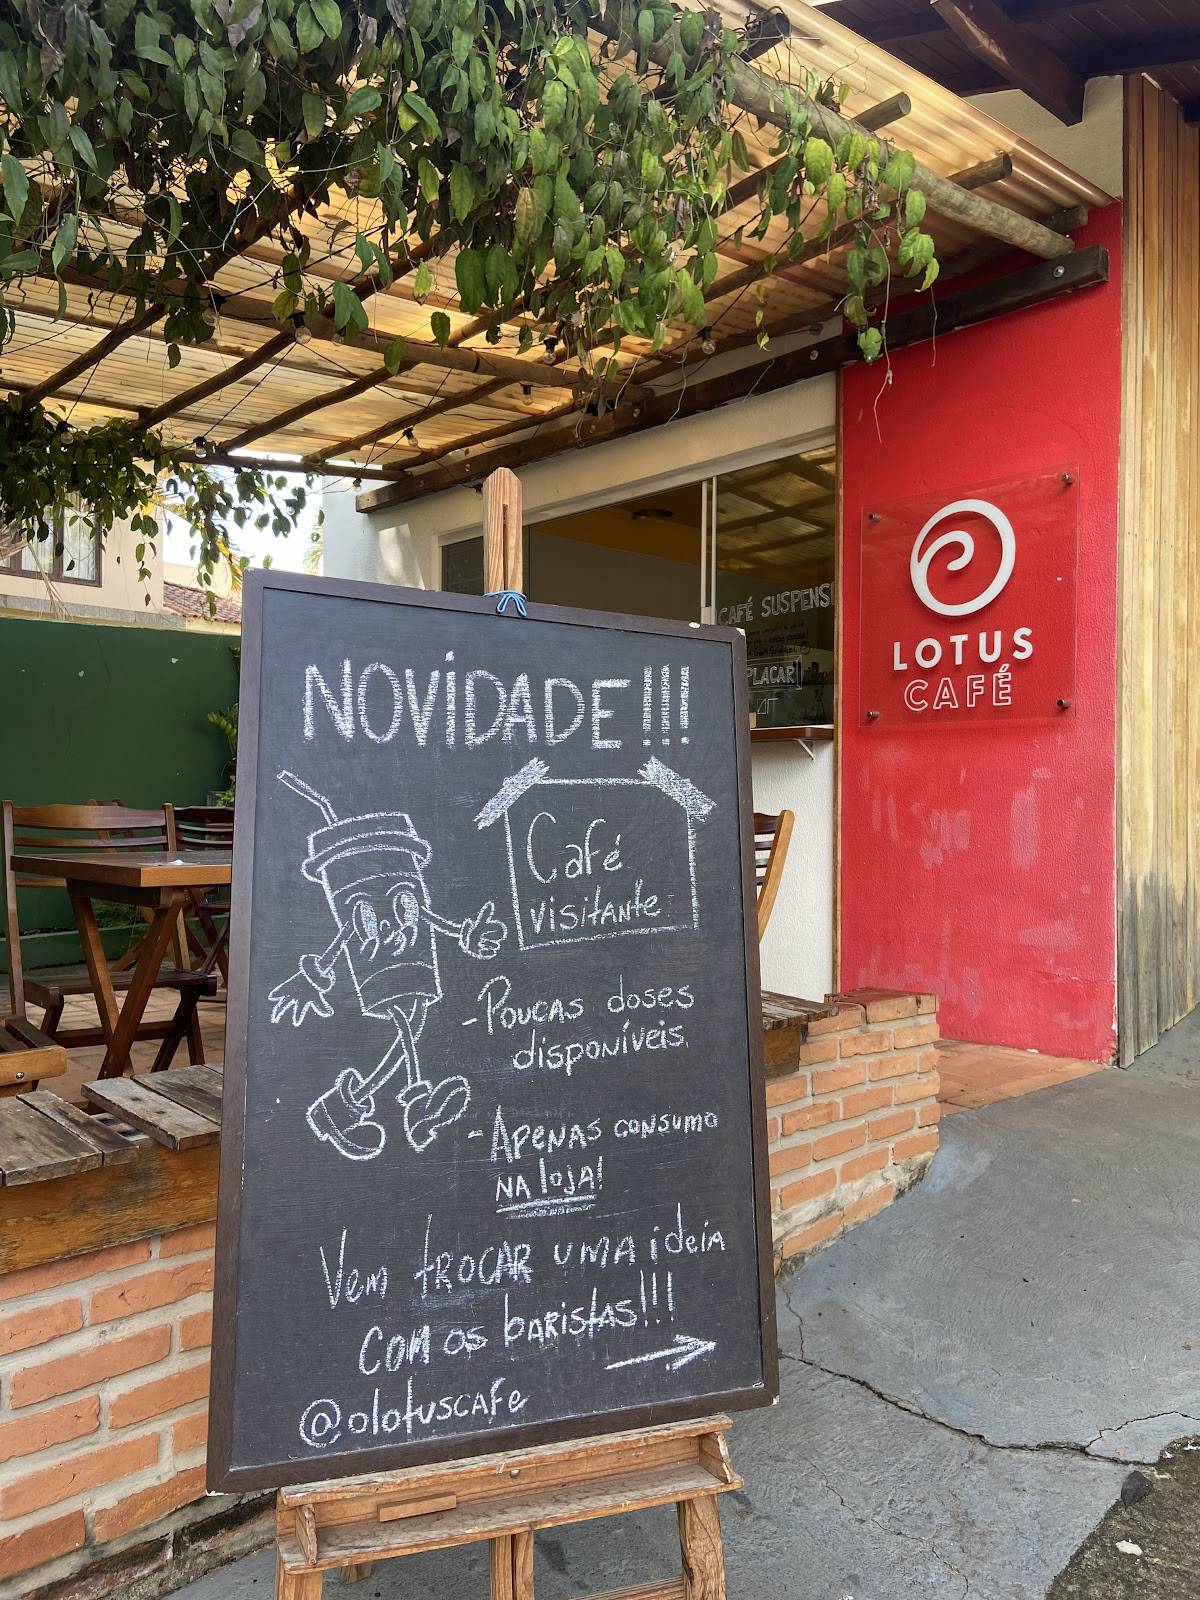 NOVIDADE!!!
Café
visitante
-Poucas doses
disponíveis.
-Apenas consumo
na loja!
Vem trocar uma ideia
com os baristas!!!
@olotuscafe
CAFÉ SUSPENS
PLACAR
LOTUS
CAFÉ